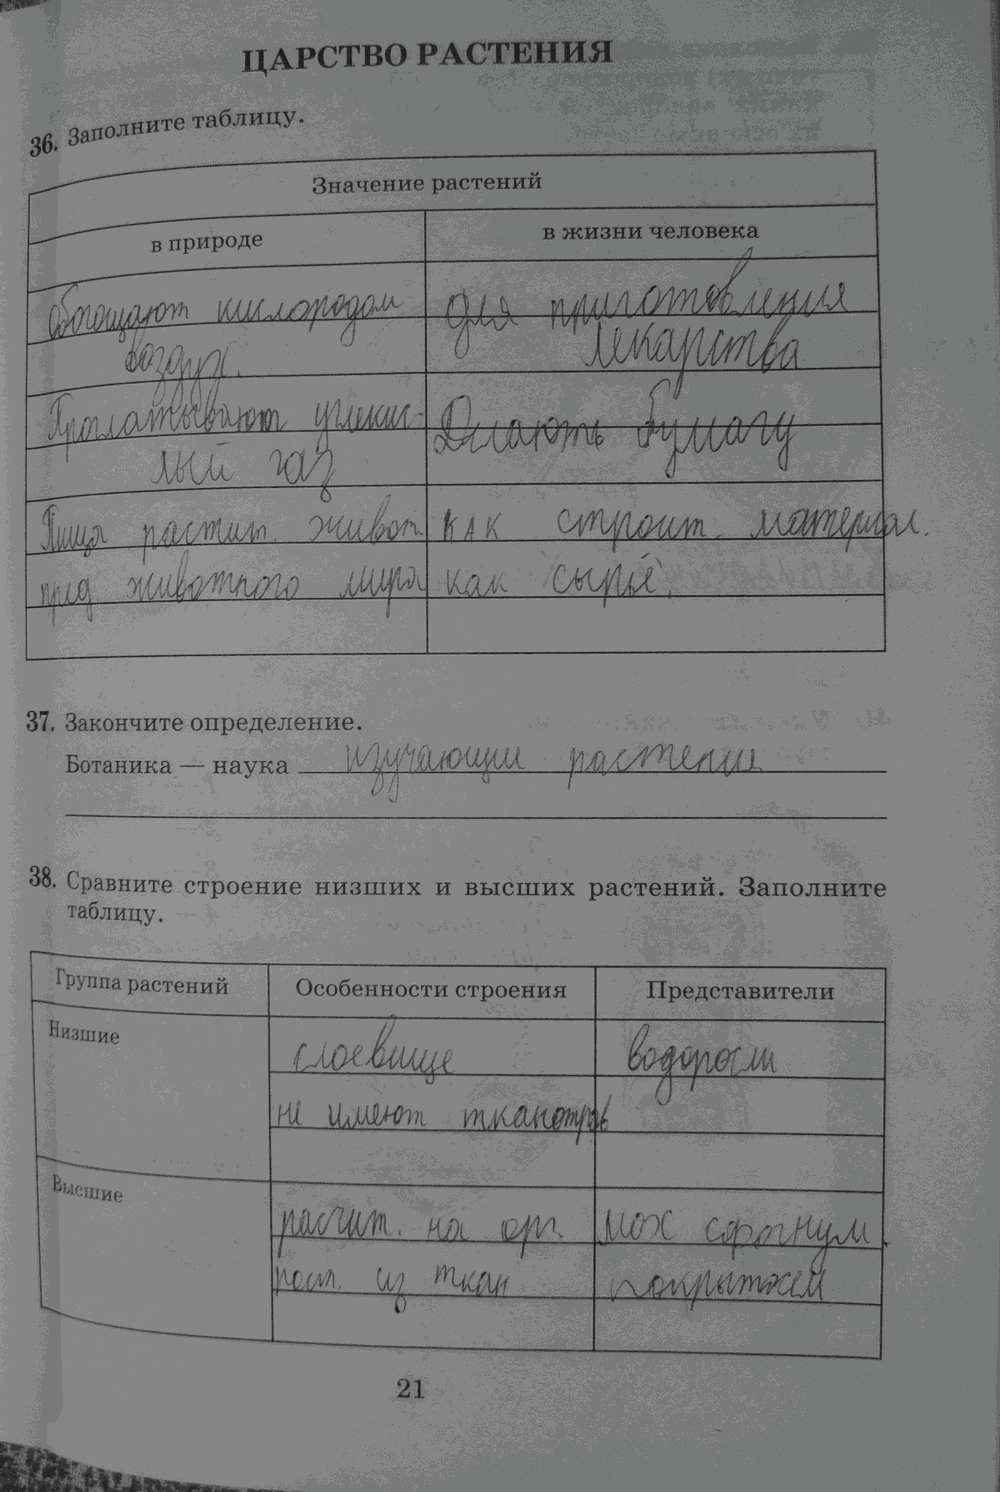 ЦАРСТВО РАСТЕНИЯ
36. Заполните таблицу.
Значение растений
в природе
в жизни человека
обогощают кислородом
воздух.
для приготовления
лекарства
углекис-
лый газ
Делають бумагу
Пища растит. живот.
как строит. материал.
пред. животного мира
как сырьё.
37. Закончите определение.
Ботаника — наука изучающии растения
38. Сравните строение низших и высших растений. Заполните
таблицу.
Группа растений
Особенности строения
Представители
Низшие
слоевище
водоросли
не имеют
Высшие
расчит. на орг.
мох сфагнум.
из ткан
21